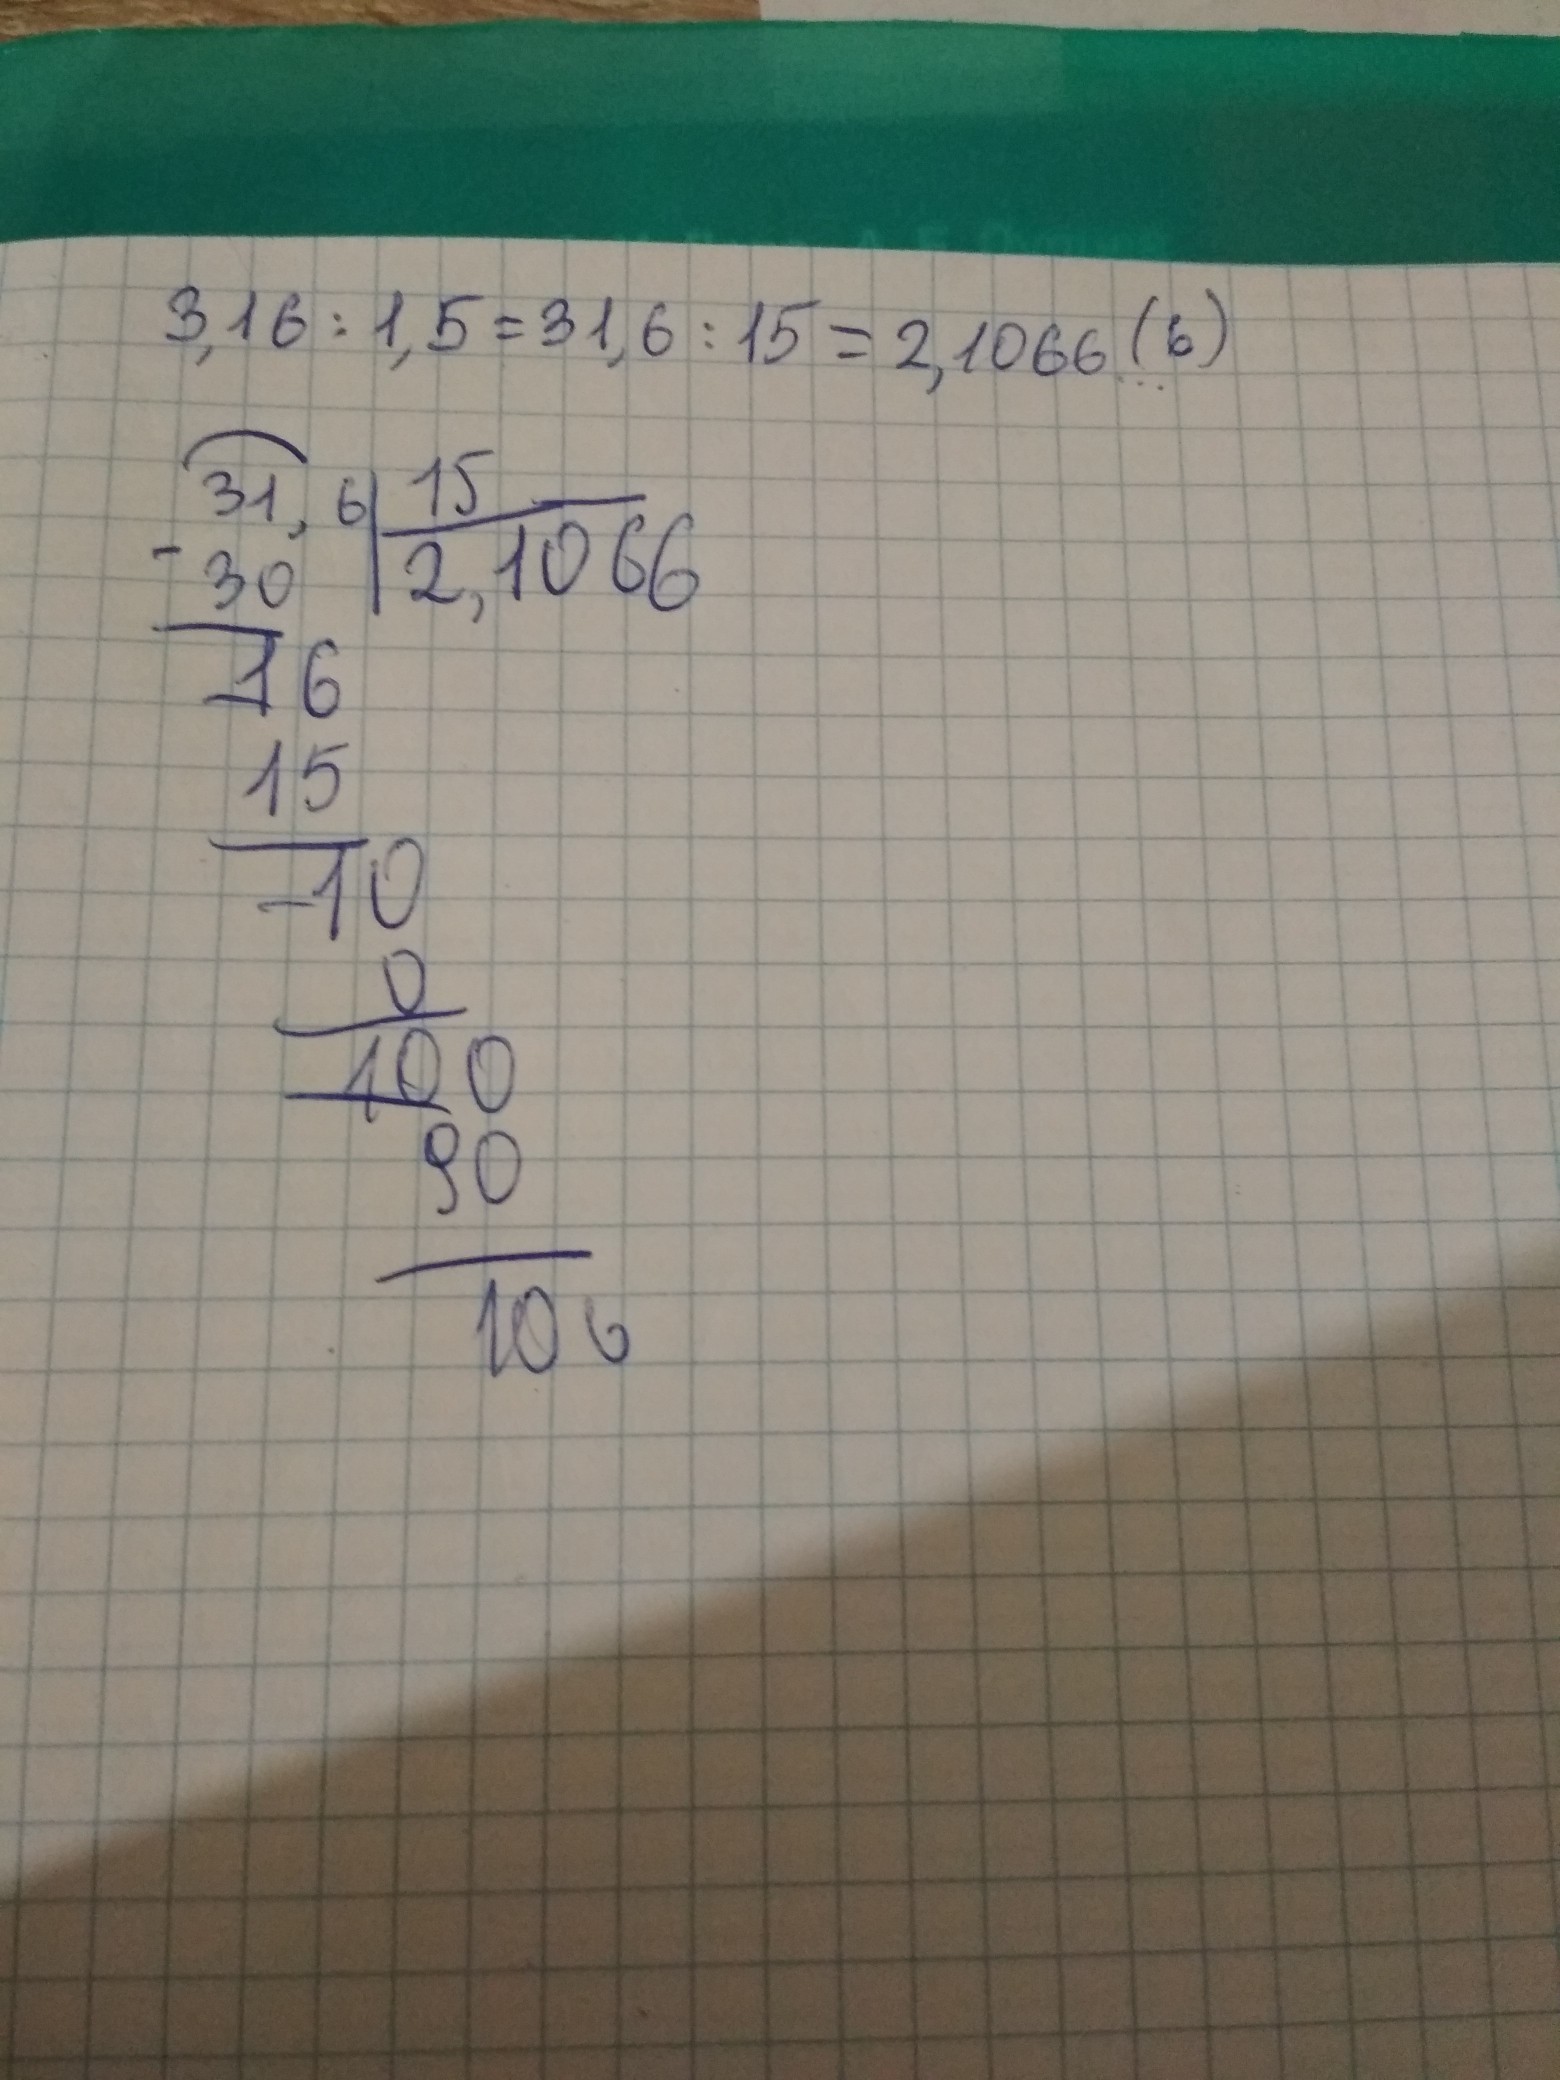 3,16 : 1,5 = 31,6 : 15 = 2,1066...(6)
31,6 | 15
- 30 | 2,1066
- 16
15
- 10
0
- 100
90
106